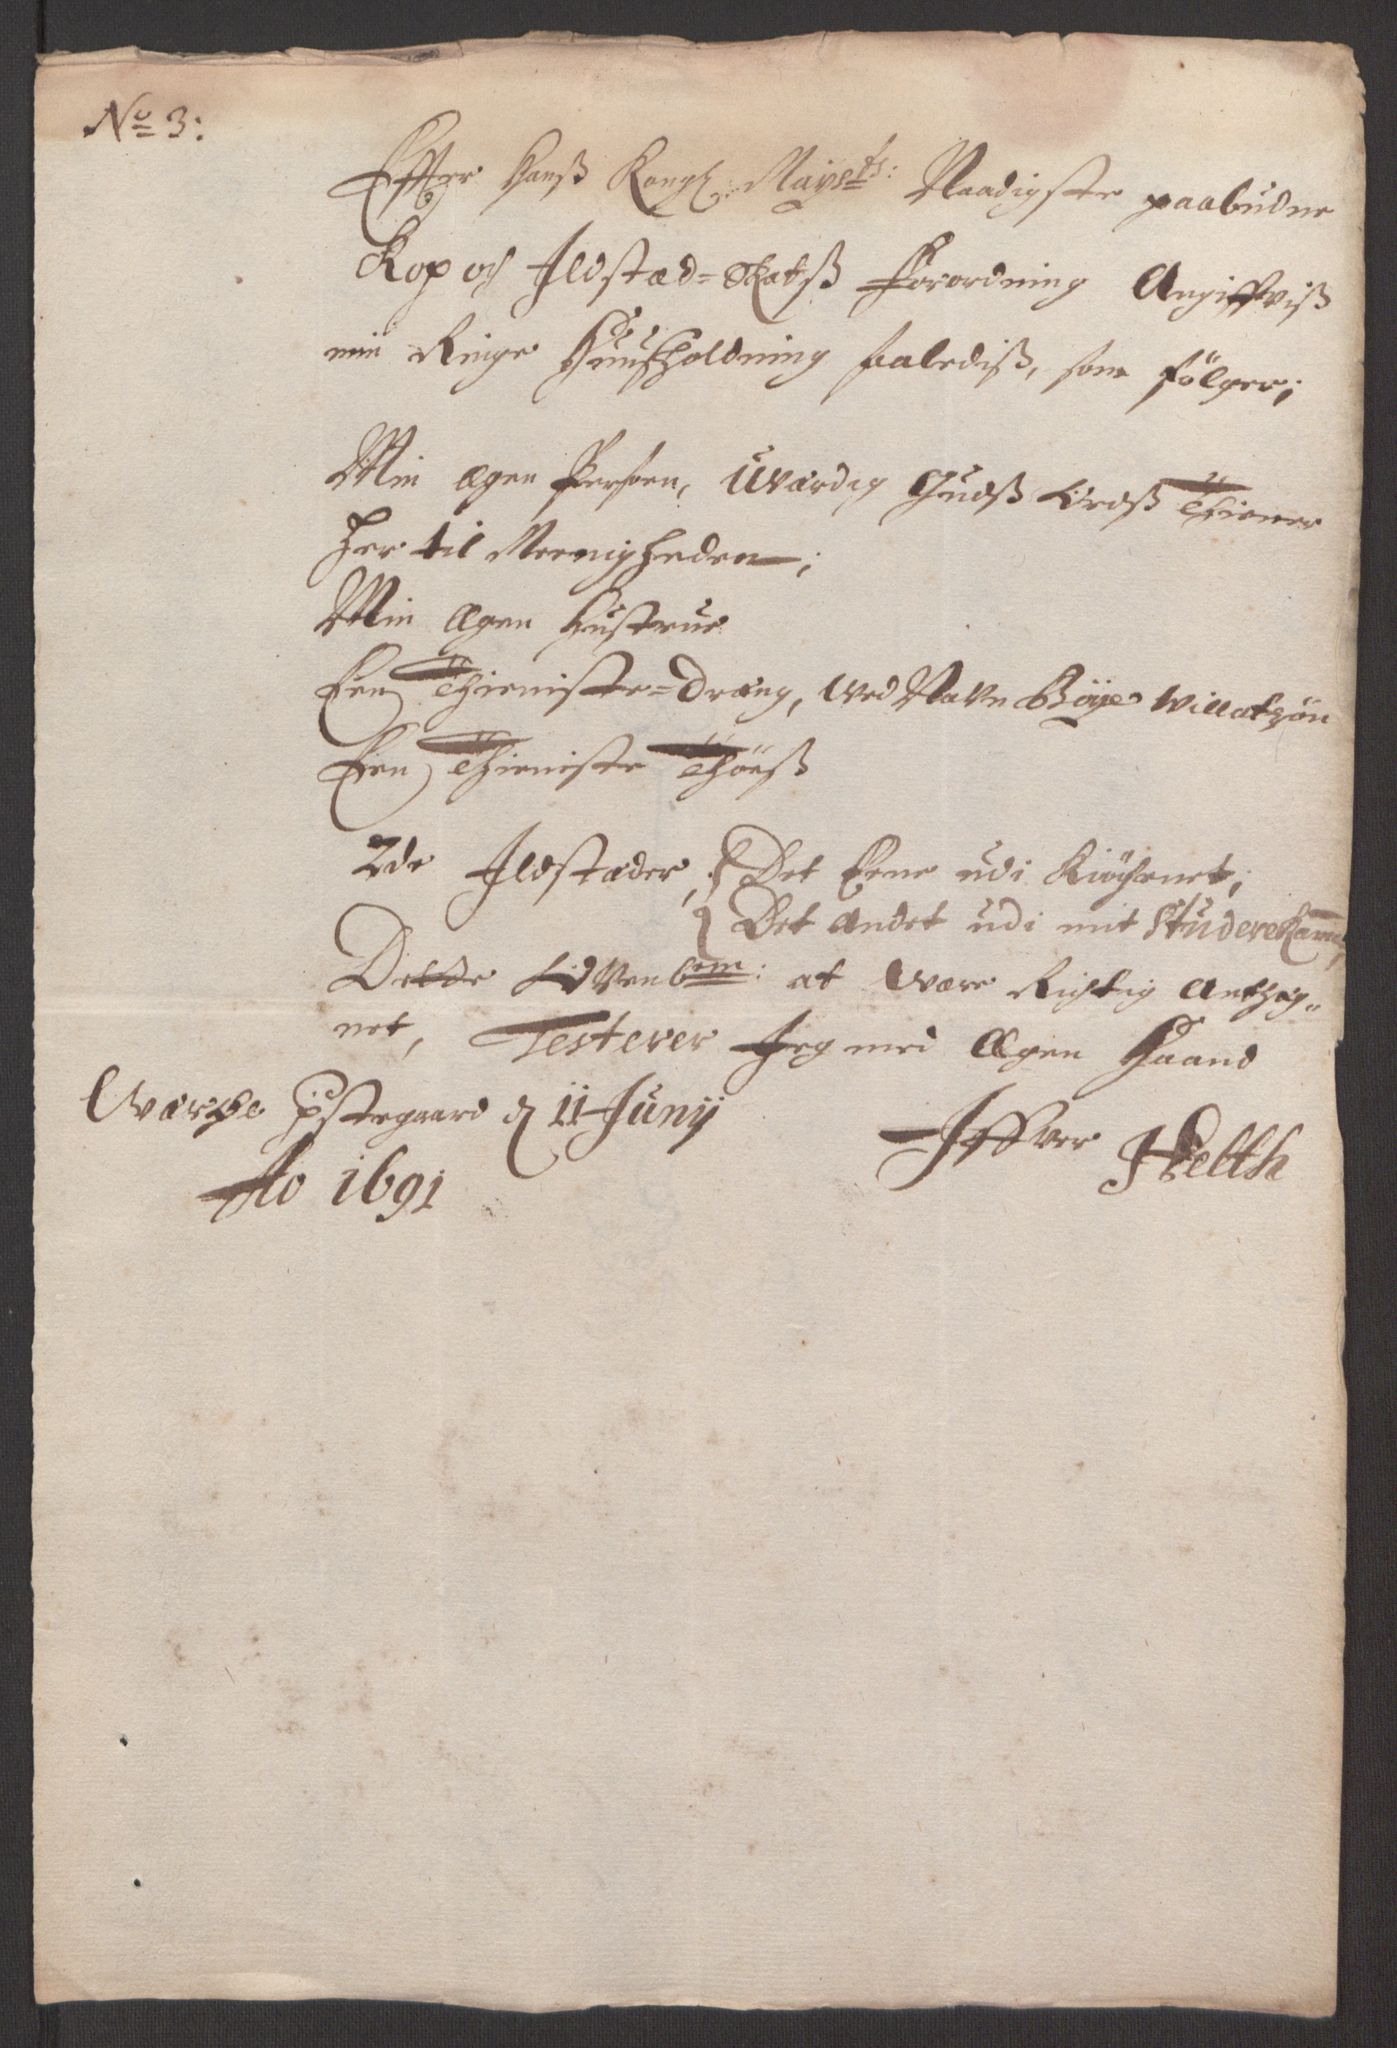 No 3:
Effter Hanß Kongl: Maysts: Naadigste paabudne
Kop och Ildstæd=Skatß Forordning Angiffviß
min Ringe Huußholdning saalediß, som följer;
Min ægen Persoen, Uværdig Gudß Ordß Thiener
her til Meenigheden;
Min ægen Hustrue
Een Thieniste=Dræng, ved Navn Böÿe Willatzön
Een Thieniste Thöeß
2de Ildstæder, Det Eene udi Kiöchenet;
Det Andet udi mit Studerekamer,
Dette at være Richtig Anteg=
net, Testerer Jeg med Ægen Haand
Præstegaard d 11 Junij
Ao 1691
Iffver Hielth